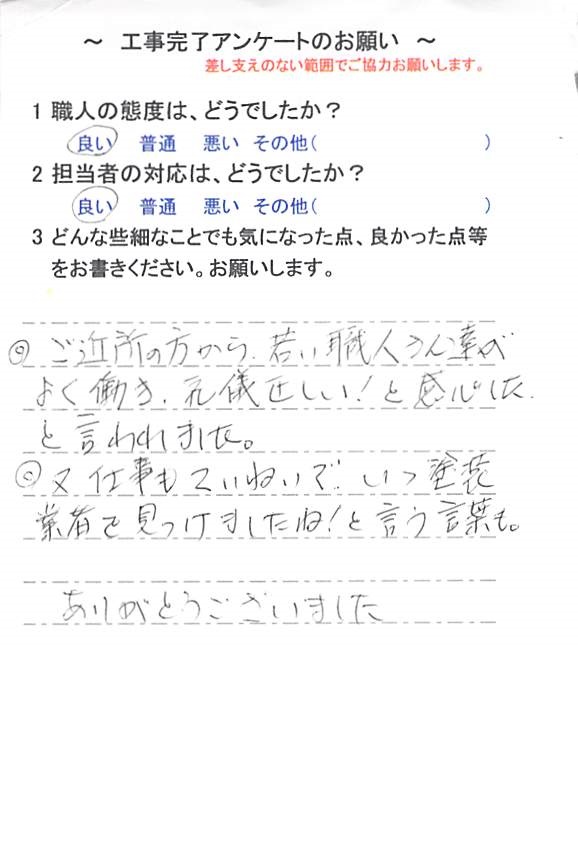 ～ 工事完了アンケートのお願い ～
差し支えのない範囲でご協力お願いします。
1 職人の態度は、どうでしたか？
良い 普通 悪い その他( )
2 担当者の対応は、どうでしたか？
良い 普通 悪い その他( )
3 どんな些細なことでも気になった点、良かった点等
をお書きください。お願いします。
◎ ご近所の方から、若い職人さん達が
よく働き、礼儀正しい！と感心した
と言われました。
◎ 又仕事もていねいで、いつ塗装
業者を見つけましたね！と言う言葉も。
ありがとうございました